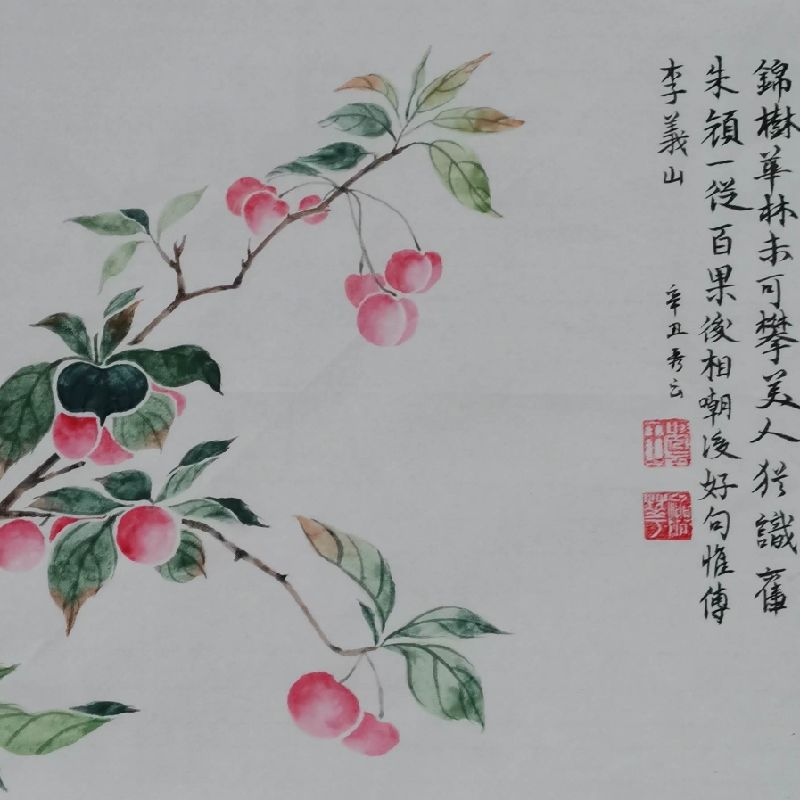 錦樹華林未可攀美人猶識舊
朱顏一從百果後相嘲後好句惟傳
李義山
辛丑秀云